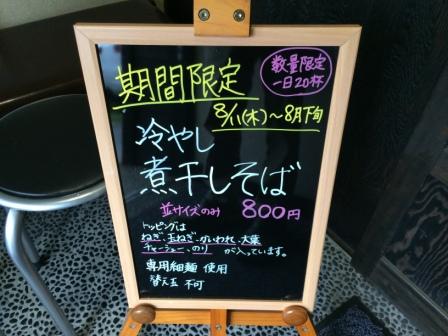 期間限定
数量限定
一日20杯
8/11(木)～8月下旬
冷やし
煮干しそば
並サイズのみ 800円
トッピングは
ねぎ、玉ねぎ、かいわれ、大葉
チャーシュー、のり が入っています。
専用細麺 使用
替え玉 不可